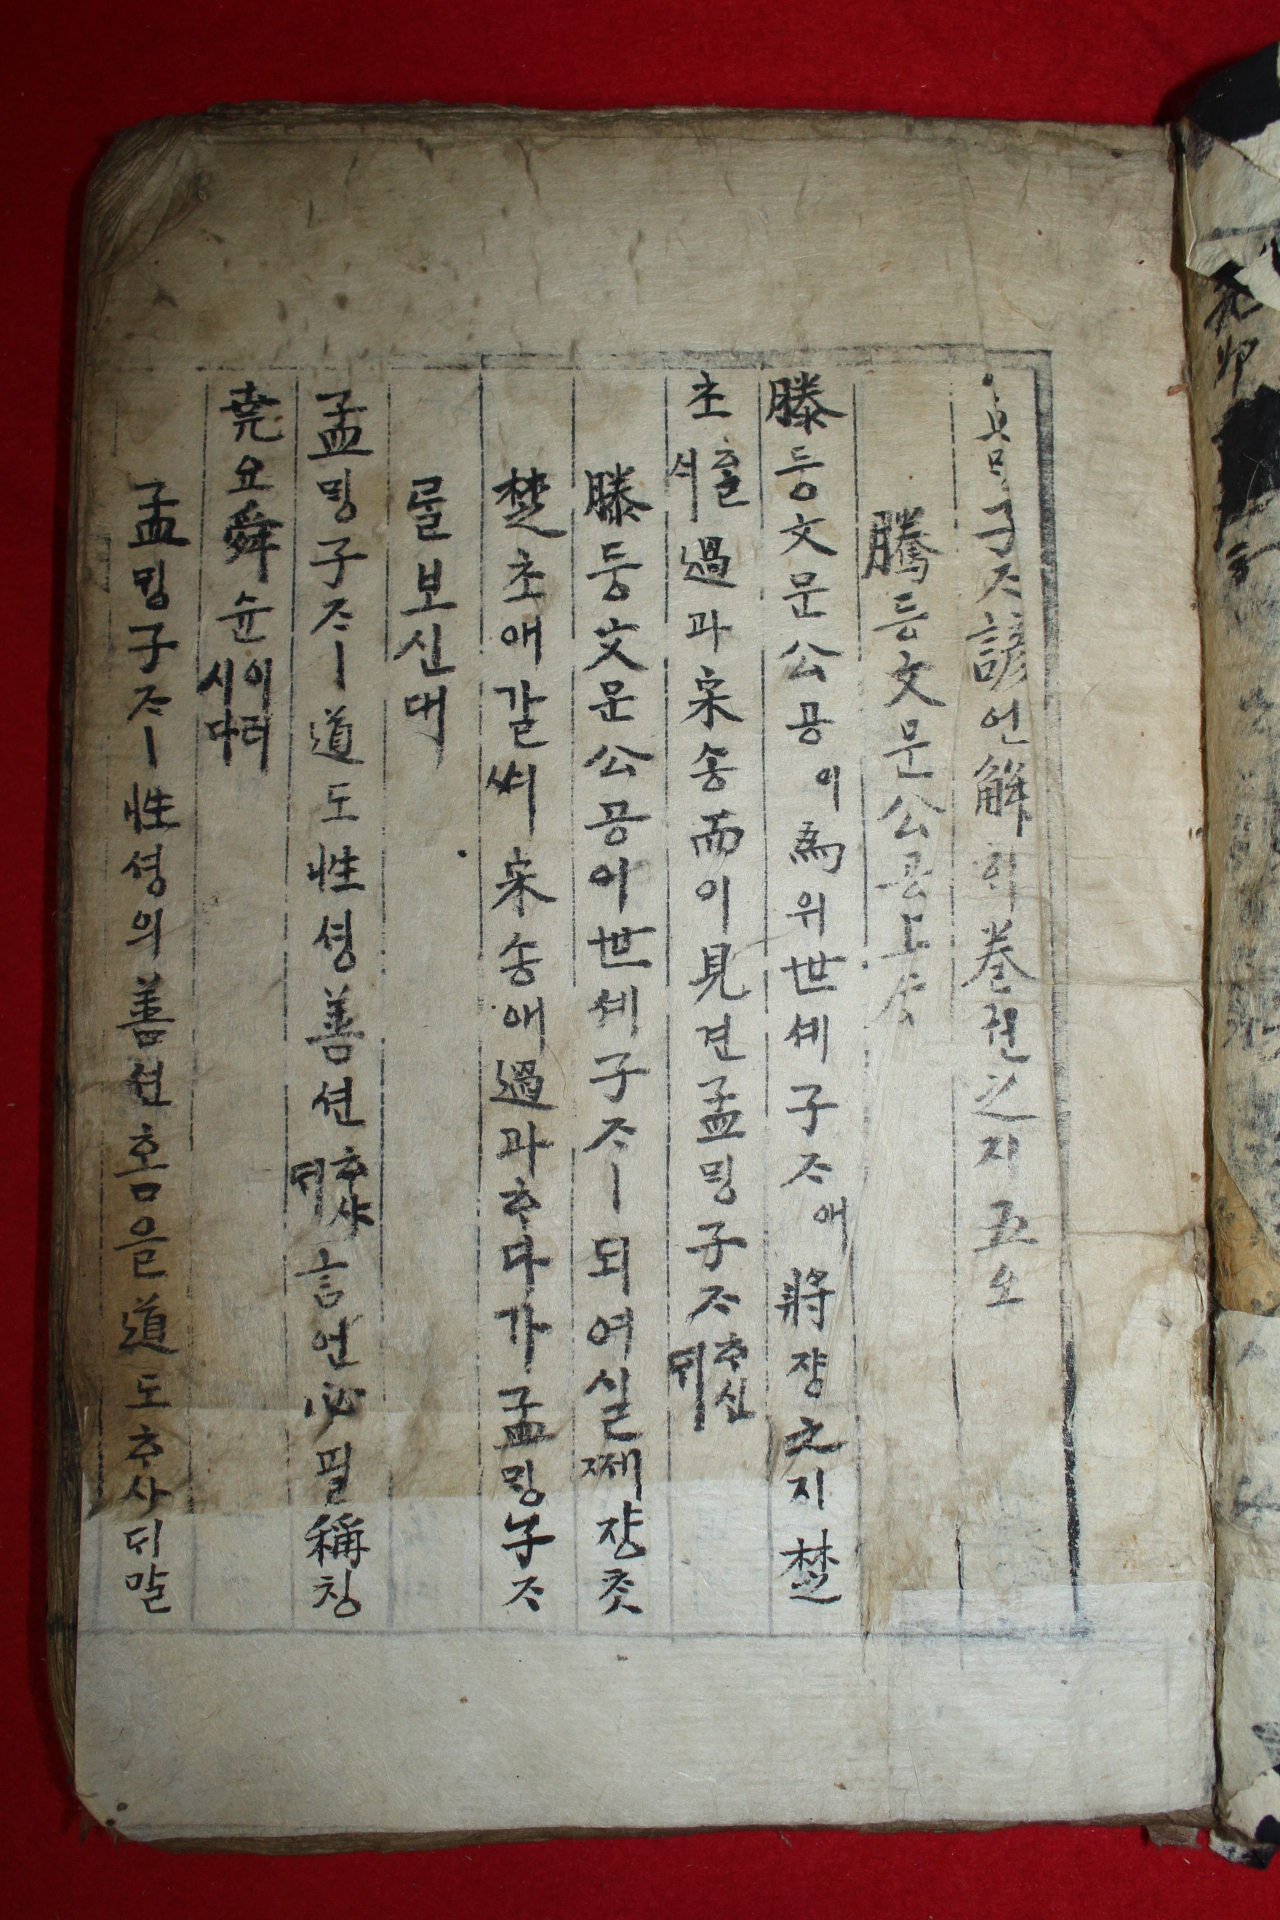 子ᄌᆞ諺언解ᄒᆡ卷권之지五오
騰등文문公공上샹
滕등文문公공이爲위世셰子ᄌᆞ애將쟝之지楚
초ᄒᆞᆯᄉᆡ過과宋송而이見견孟ᄆᆡᆼ子ᄌᆞᄒᆞ신ᄃᆡ
滕등文문公공이世셰子ᄌᆞㅣ되여실쩨쟝ᄎᆞᆺ
楚초애갈ᄉᆡ宋송애過과ᄒᆞ다가孟ᄆᆡᆼ子ᄌᆞ
ᄅᆞᆯ보신대
孟ᄆᆡᆼ子ᄌᆞㅣ道도性셩善션ᄒᆞ샤ᄃᆡ言언必필稱칭
堯요舜슌이러시다
孟ᄆᆡᆼ子ᄌᆞㅣ性셩의善션홈을道도ᄒᆞ사ᄃᆡ말